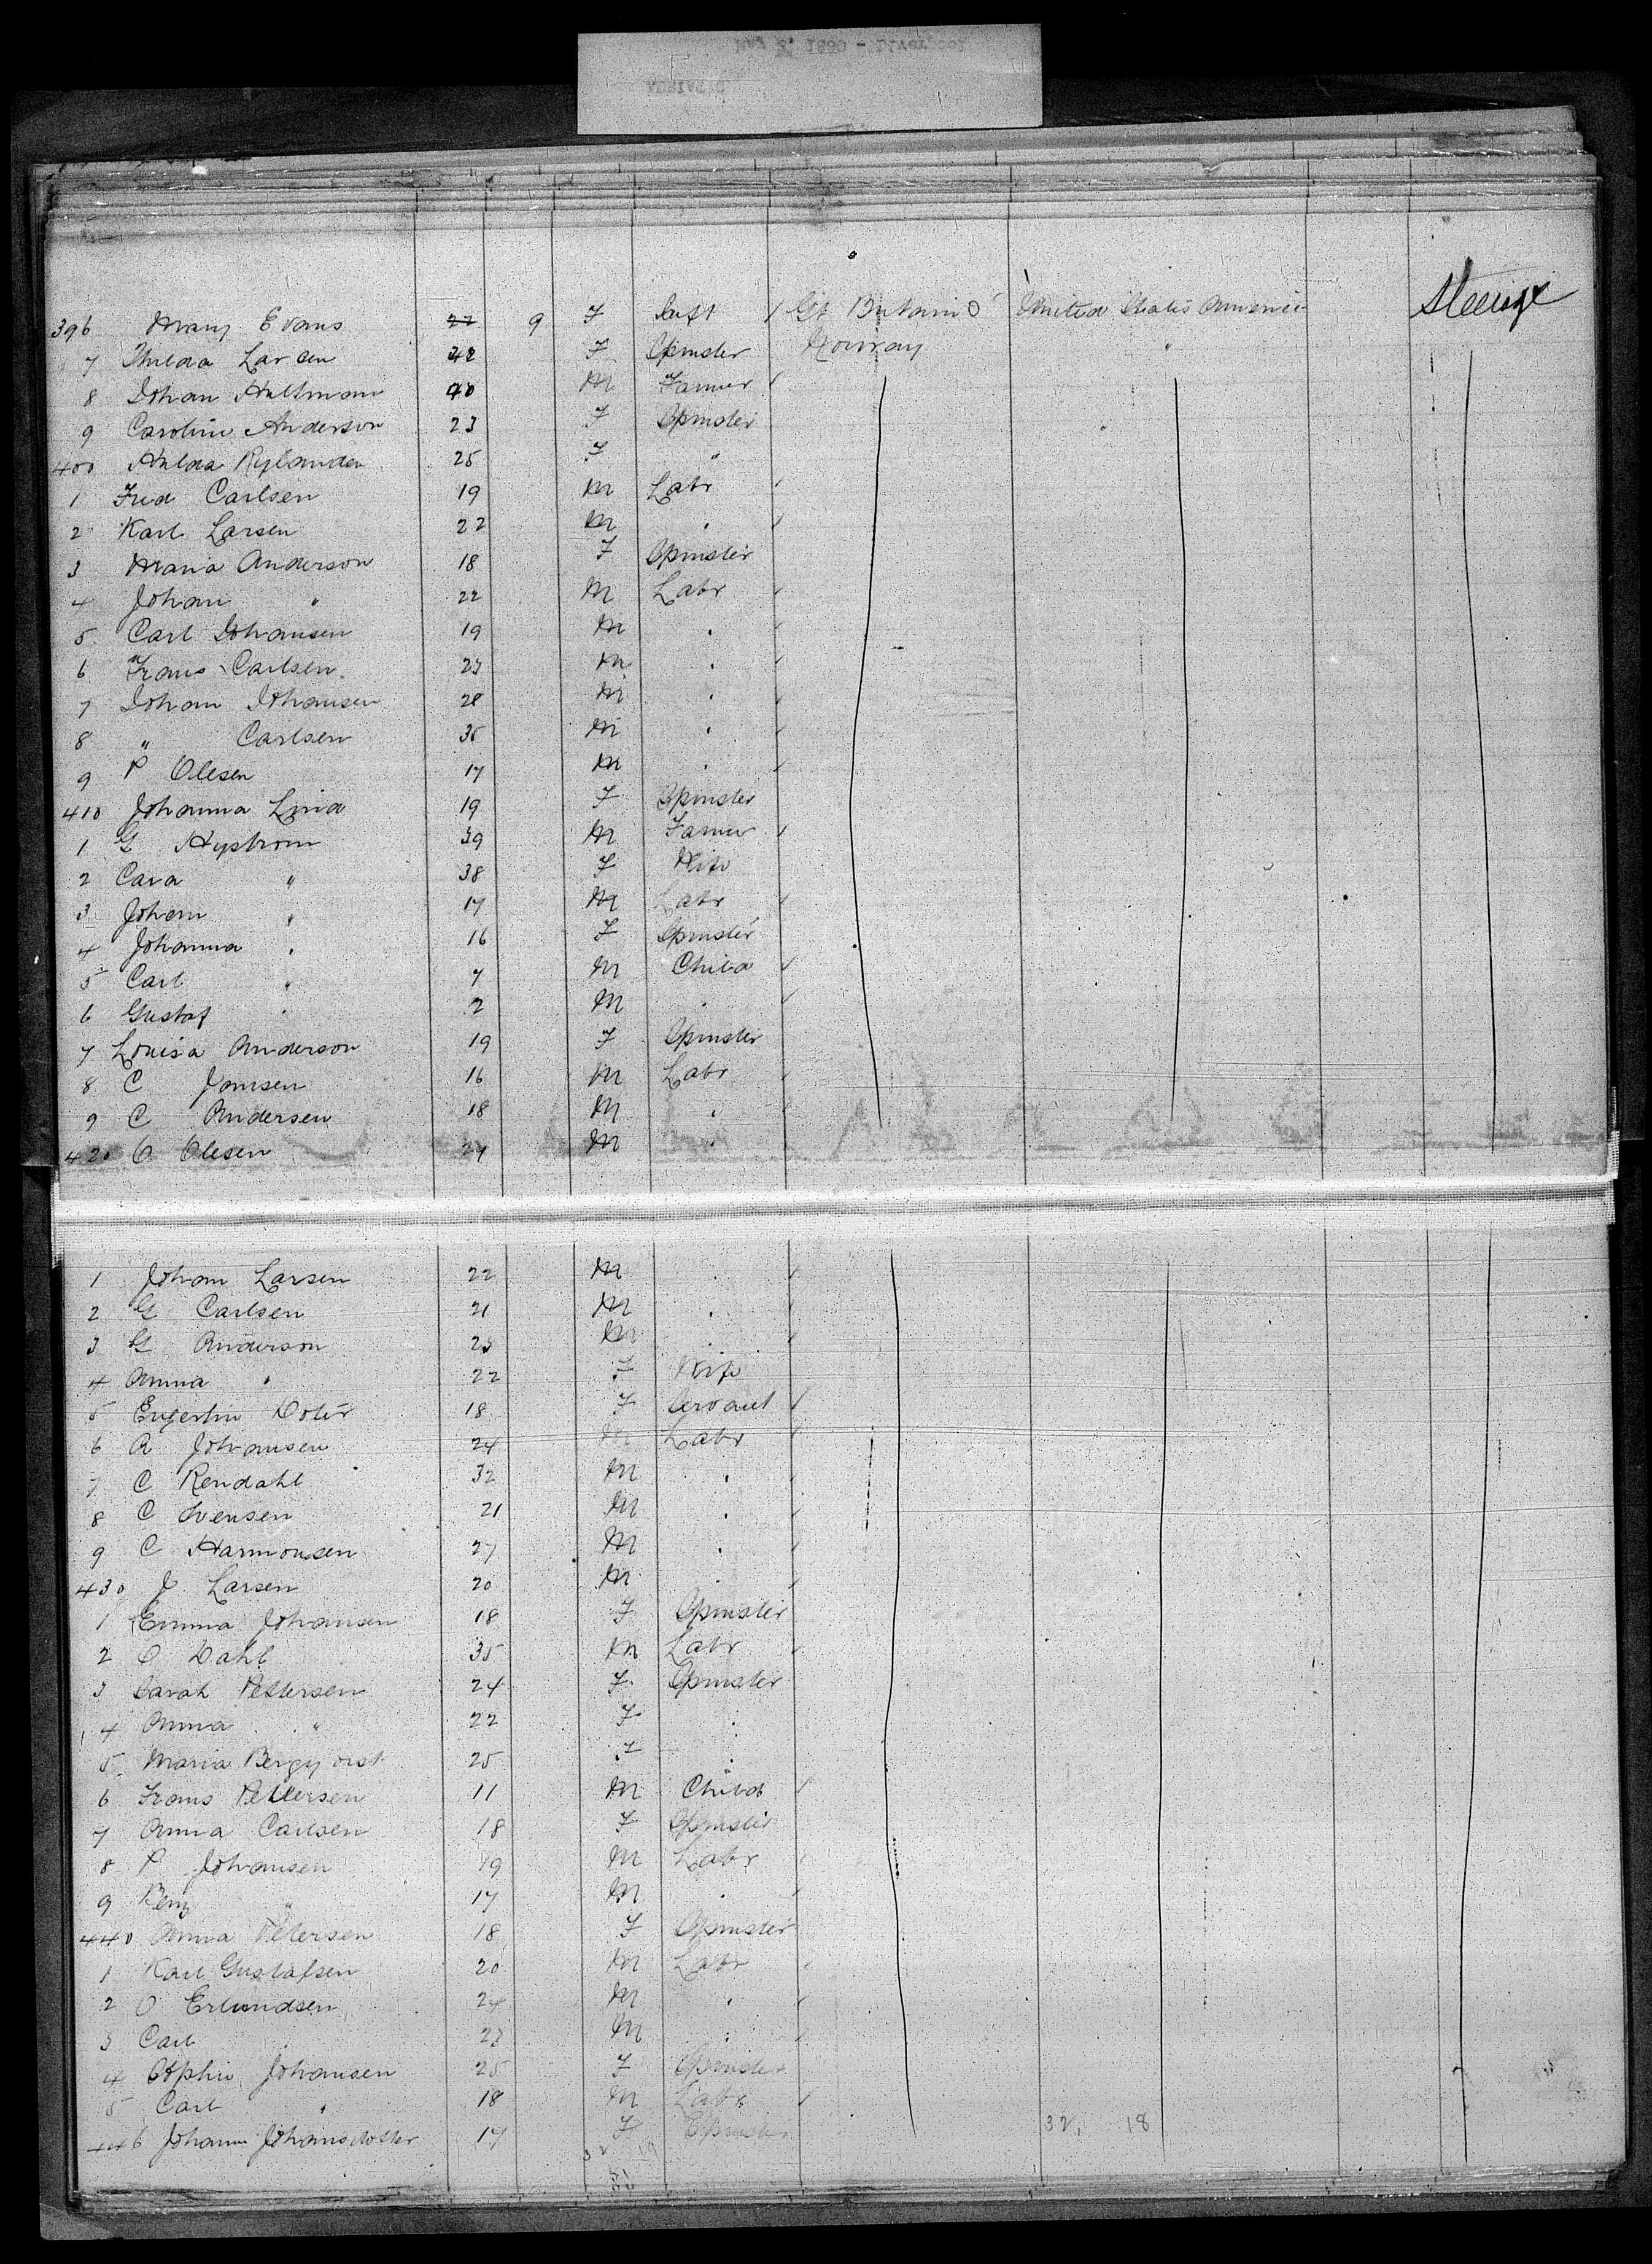 396 Mary Evans 22 9 F Inft / Gt Britain United States America Steerage
7 Thilda Larsen 42 F Spinster Norway "
8 Johan Hultman 40 M Farmer /
9 Caroline Anderson 23 F Spinster
400 Hulda Rylander 25 F "
1 Fred Carlsen 19 M Labr /
2 Karl Larsen 22 M " /
3 Maria Anderson 18 F Spinster
4 Johan " 22 M Labr /
5 Carl Johansen 19 M " /
6 Frans Carlsen 23 M " /
7 Johan Johansen 28 M " /
8 " Carlsen 35 M " /
9 P Olesen 17 M " /
410 Johanna Lind 19 F Spinster
1 G Nystrom 39 M Farmer /
2 Cara " 38 F Wife
3 Johan " 17 M Labr /
4 Johanna " 16 F Spinster
5 Carl " 7 M Child /
6 Gustaf " 2 M " /
7 Louisa Anderson 19 F Spinster
8 C Jansen 16 M Labr /
9 C Andersen 18 M " /
420 O Olesen 24 M "
1 Johan Larsen 22 M " /
2 G Carlsen 21 M " /
3 G Anderson 25 M " /
4 Anna " 22 F Wife
5 18 F Servant /
6 A Johansen 24 M Labr /
7 C Rendahl 32 M " /
8 C Svensen 21 M " /
9 C Harmonsen 27 M " /
430 J Larsen 20 M " /
1 Emma Johansen 18 F Spinster
2 O Dahl 35 M Labr /
3 Sarah Pettersen 24 F Spinster
4 Anna " 22 F "
5 Maria 25 F "
6 Frans Pettersen 11 M Child /
7 Anna Carlsen 18 F Spinster
8 P Johansen 19 M Labr /
9 Benj " 17 M " /
440 Anna Petersen 18 F Spinster
1 Karl Gustafsen 20 M Labr /
2 O Erlundsen 24 M " /
3 Carl " 23 M " /
4 Sophie Johansen 25 F Spinster
5 Carl " 18 M Labr /
446 Johanna Johansdotter 17 F Spinster 32 18